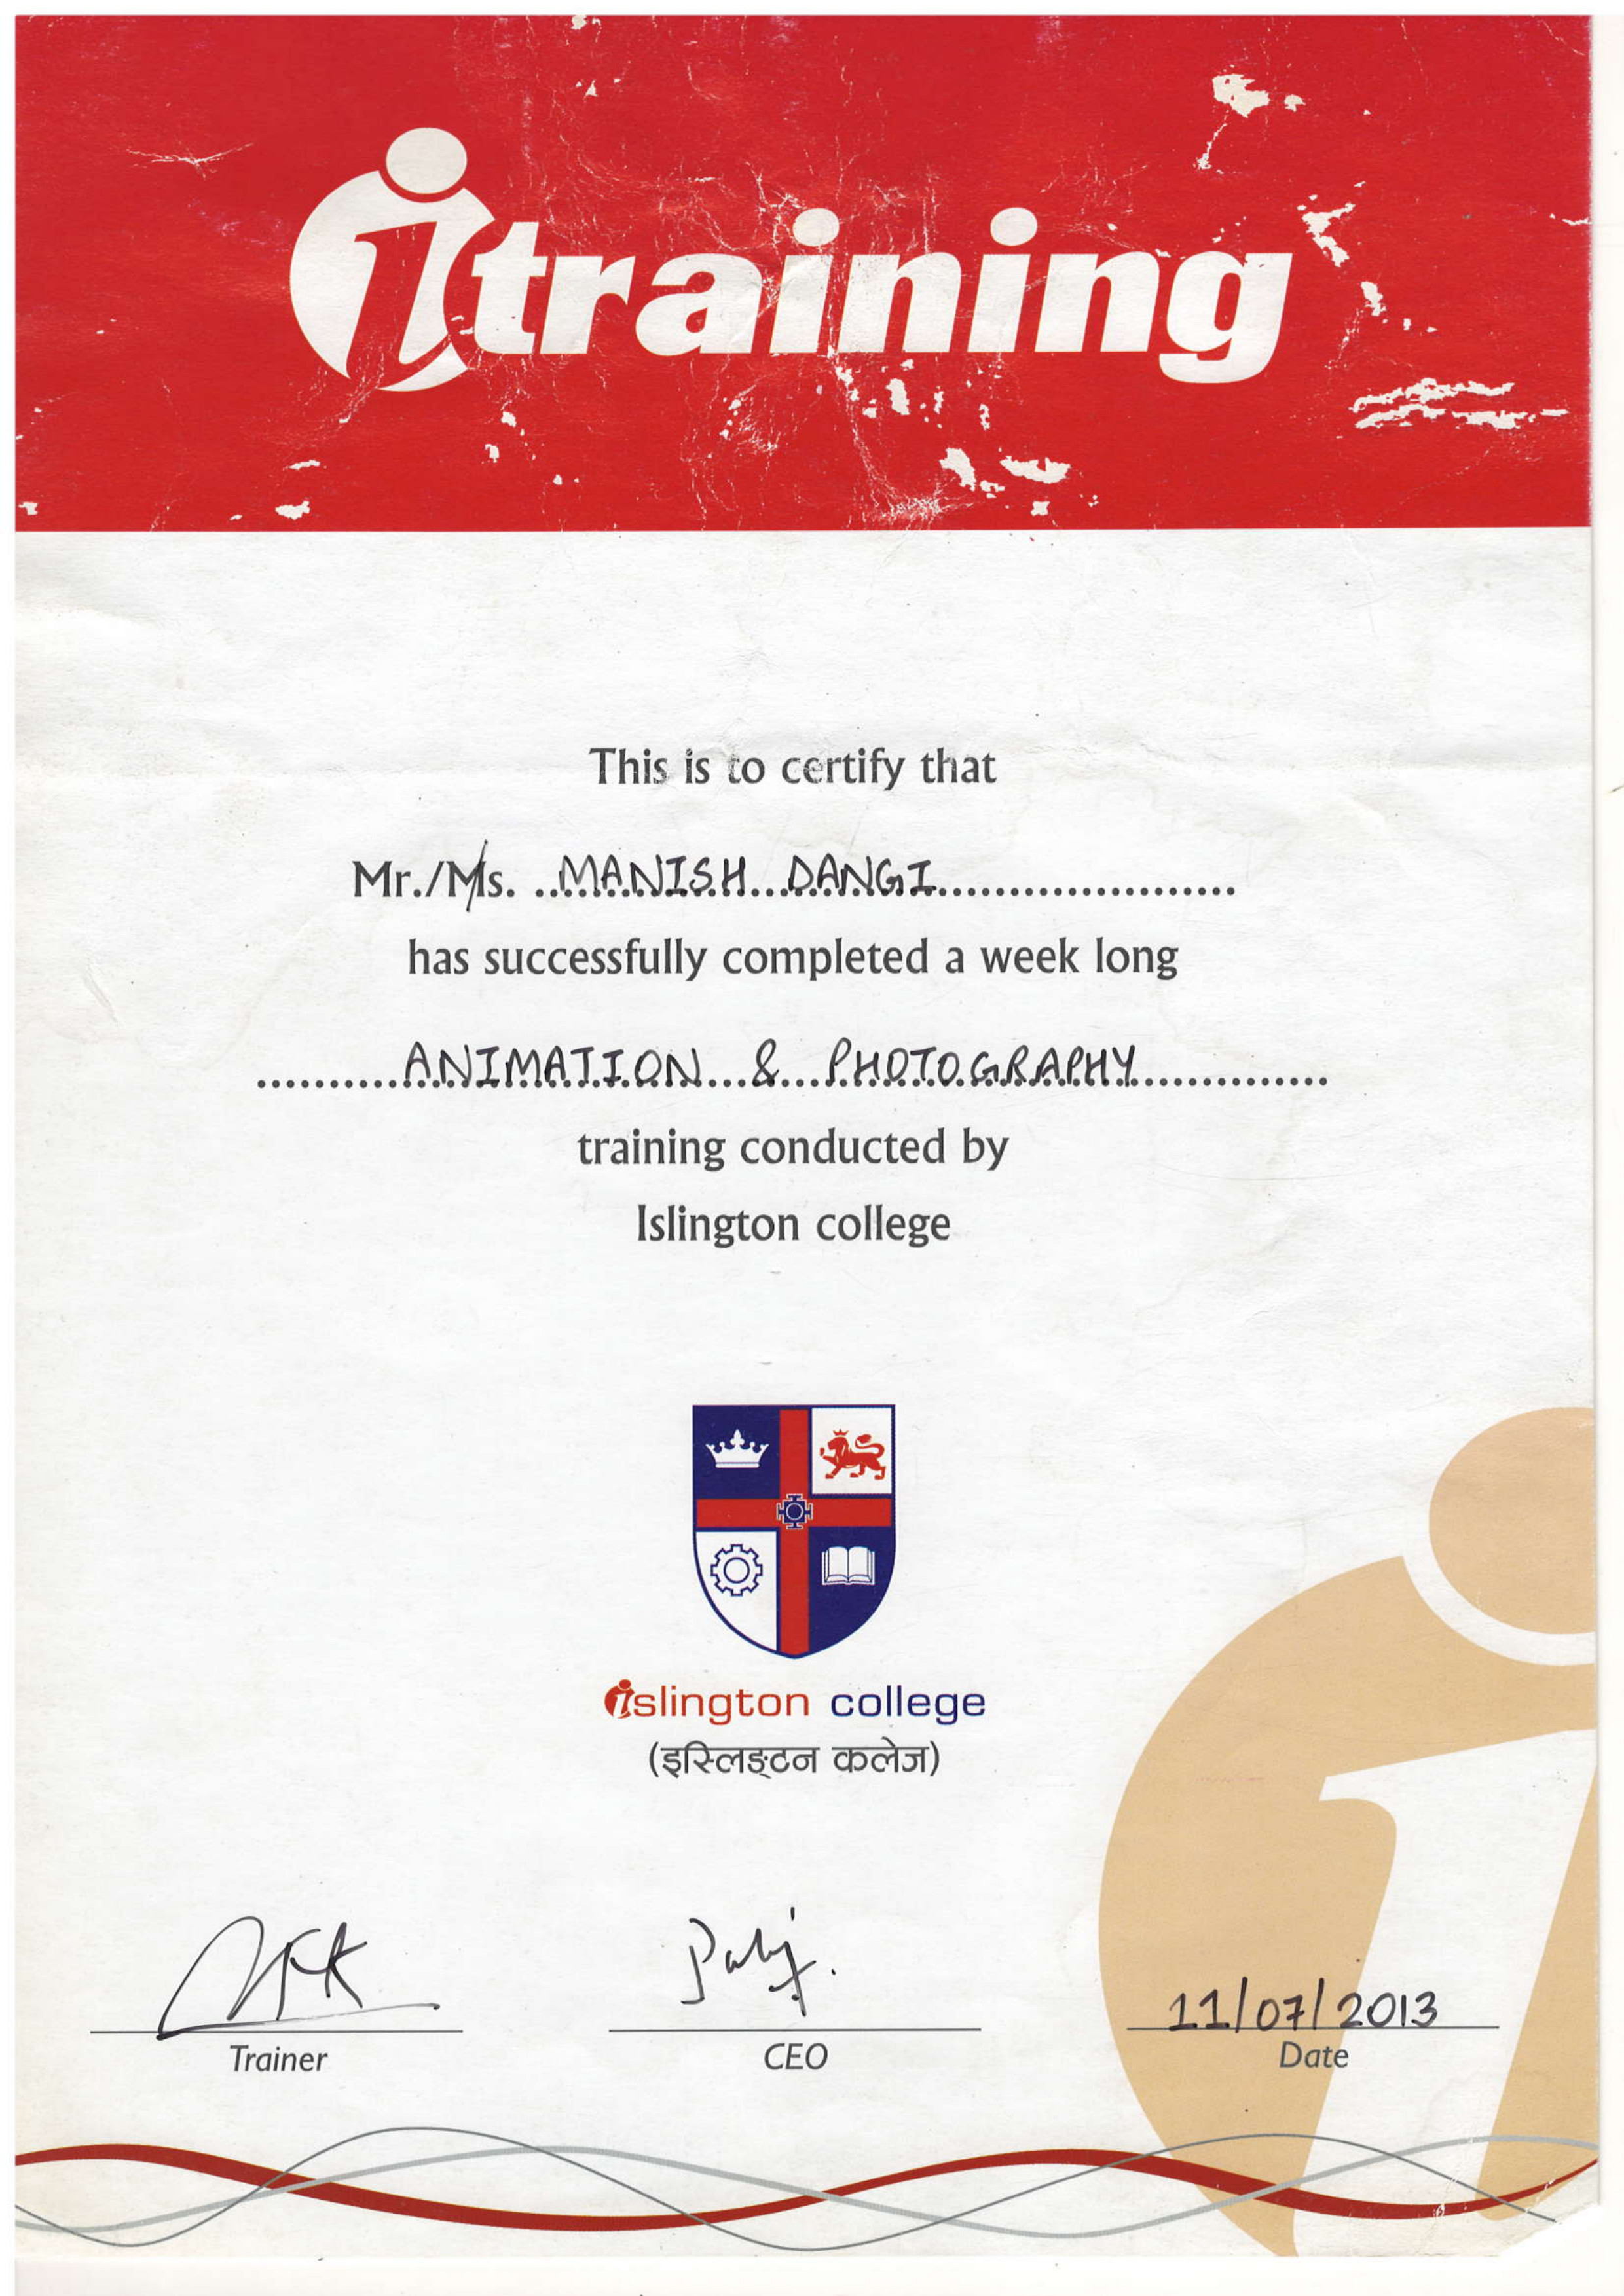 itraining
This is to certify that
Mr./Ms. MANISH DANGI
has successfully completed a week long
ANIMATION & PHOTOGRAPHY
training conducted by
Islington college
islington college
(इस्लिङ्टन कलेज)
11/07/2013
Trainer CEO Date